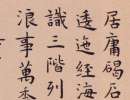 居庸碣石
逶迤經海
識三階列
浪事萬